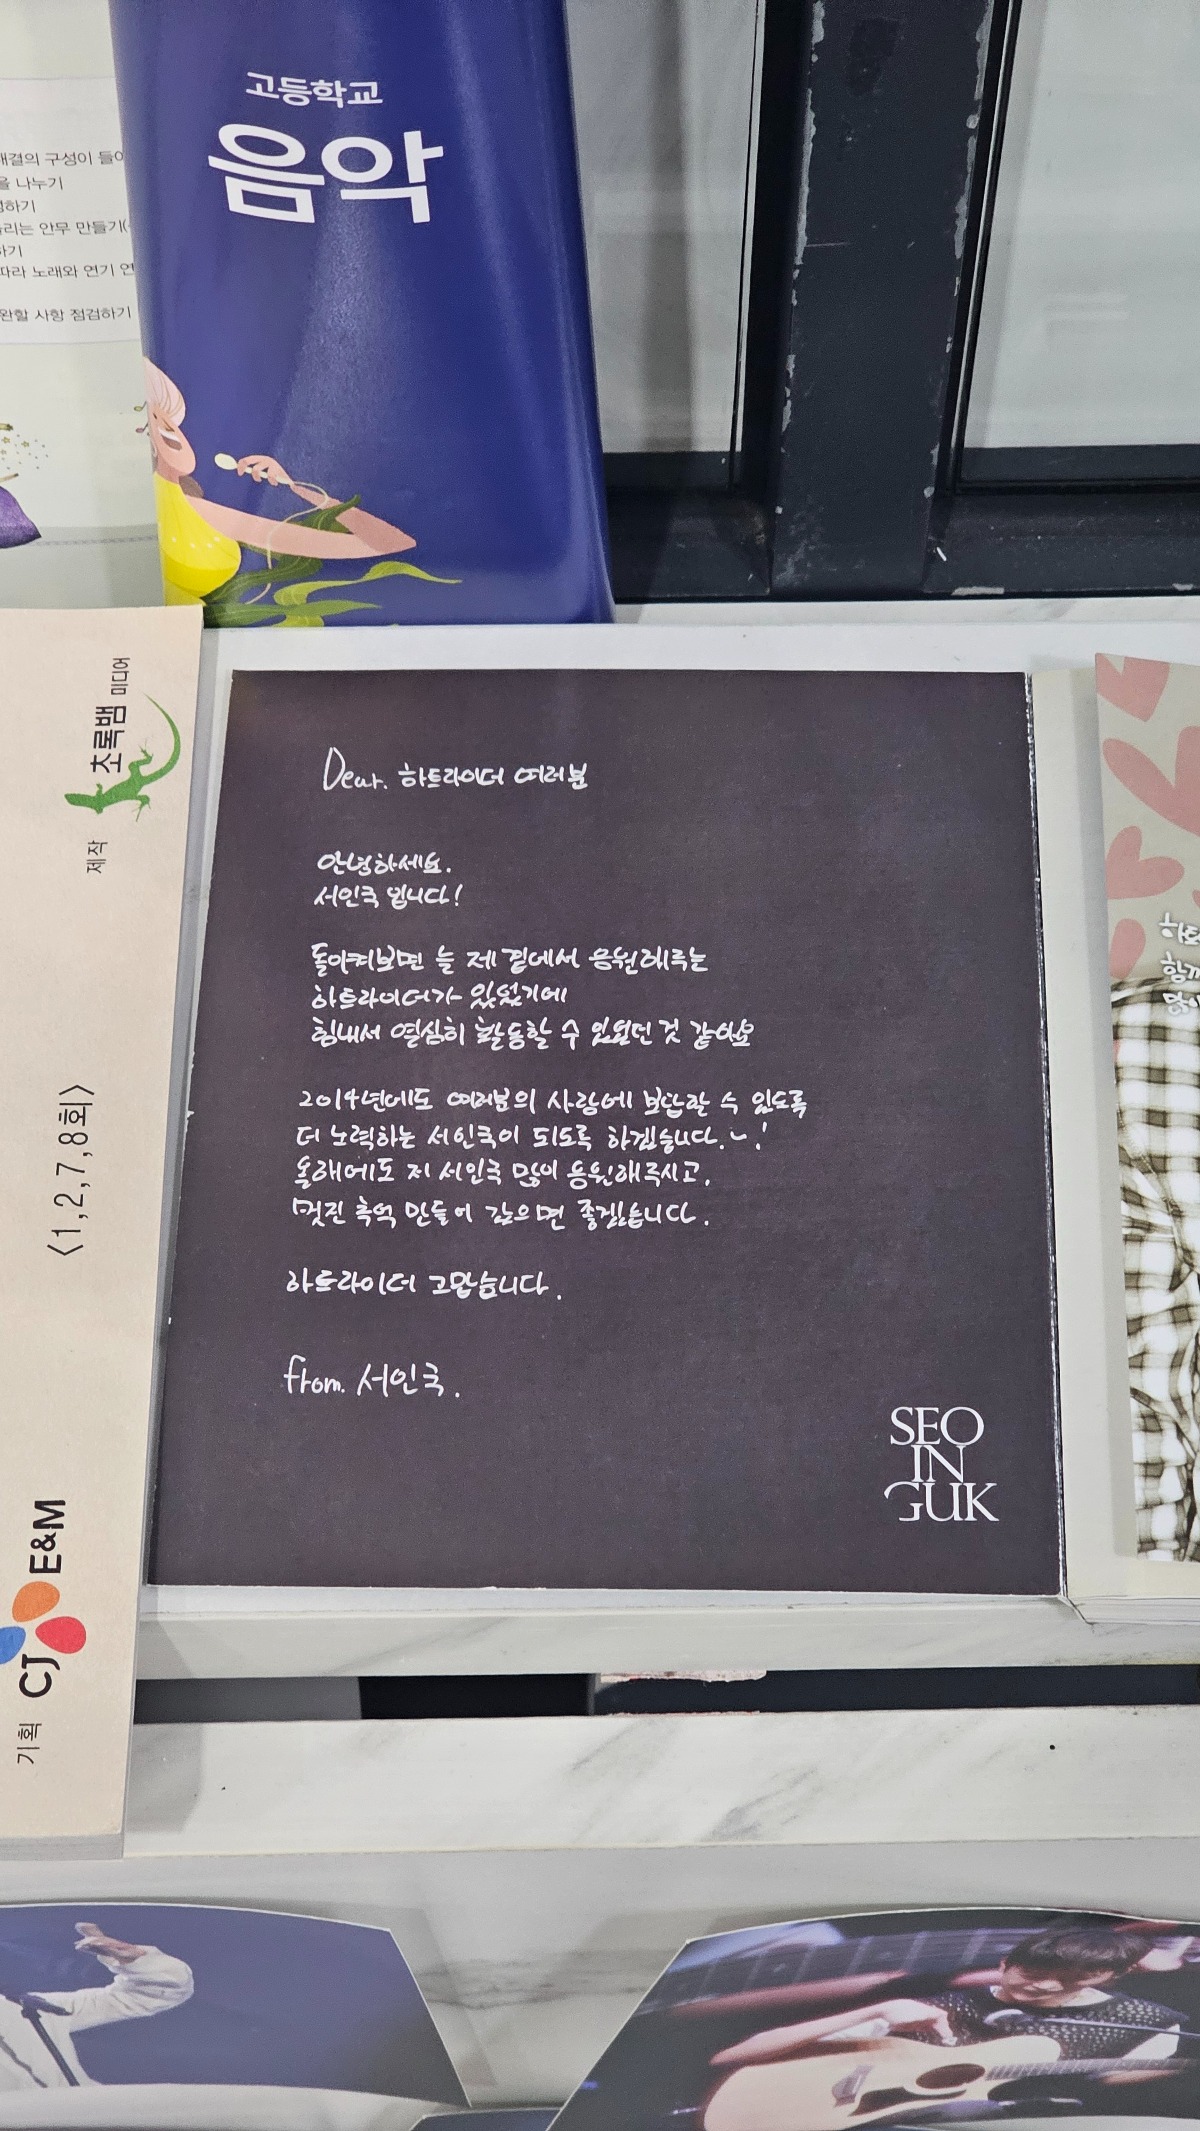 고등학교
음악
해결의 구성이 들어
을 나누기
하기
리는 안무 만들기(
하기
따라 노래와 연기 연
완할 사항 점검하기
제작 초록뱀 미디어
<1,2,7,8회>
기획 CJ E&M
Dear. 하트라이더 여러분
안녕하세요.
서인국 입니다!
돌아켜보면 늘 제 곁에서 응원해주는
하트라이더가 있었기에
힘내서 열심히 활동할 수 있었던 것 같아요
2014년에도 여러분의 사랑에 보답할 수 있도록
더 노력하는 서인국이 되도록 하겠습니다.~!
올해에도 저 서인국 많이 응원해주시고,
멋진 추억 만들어 갔으면 좋겠습니다.
하트라이더 고맙습니다.
from. 서인국.
SEO
IN
GUK